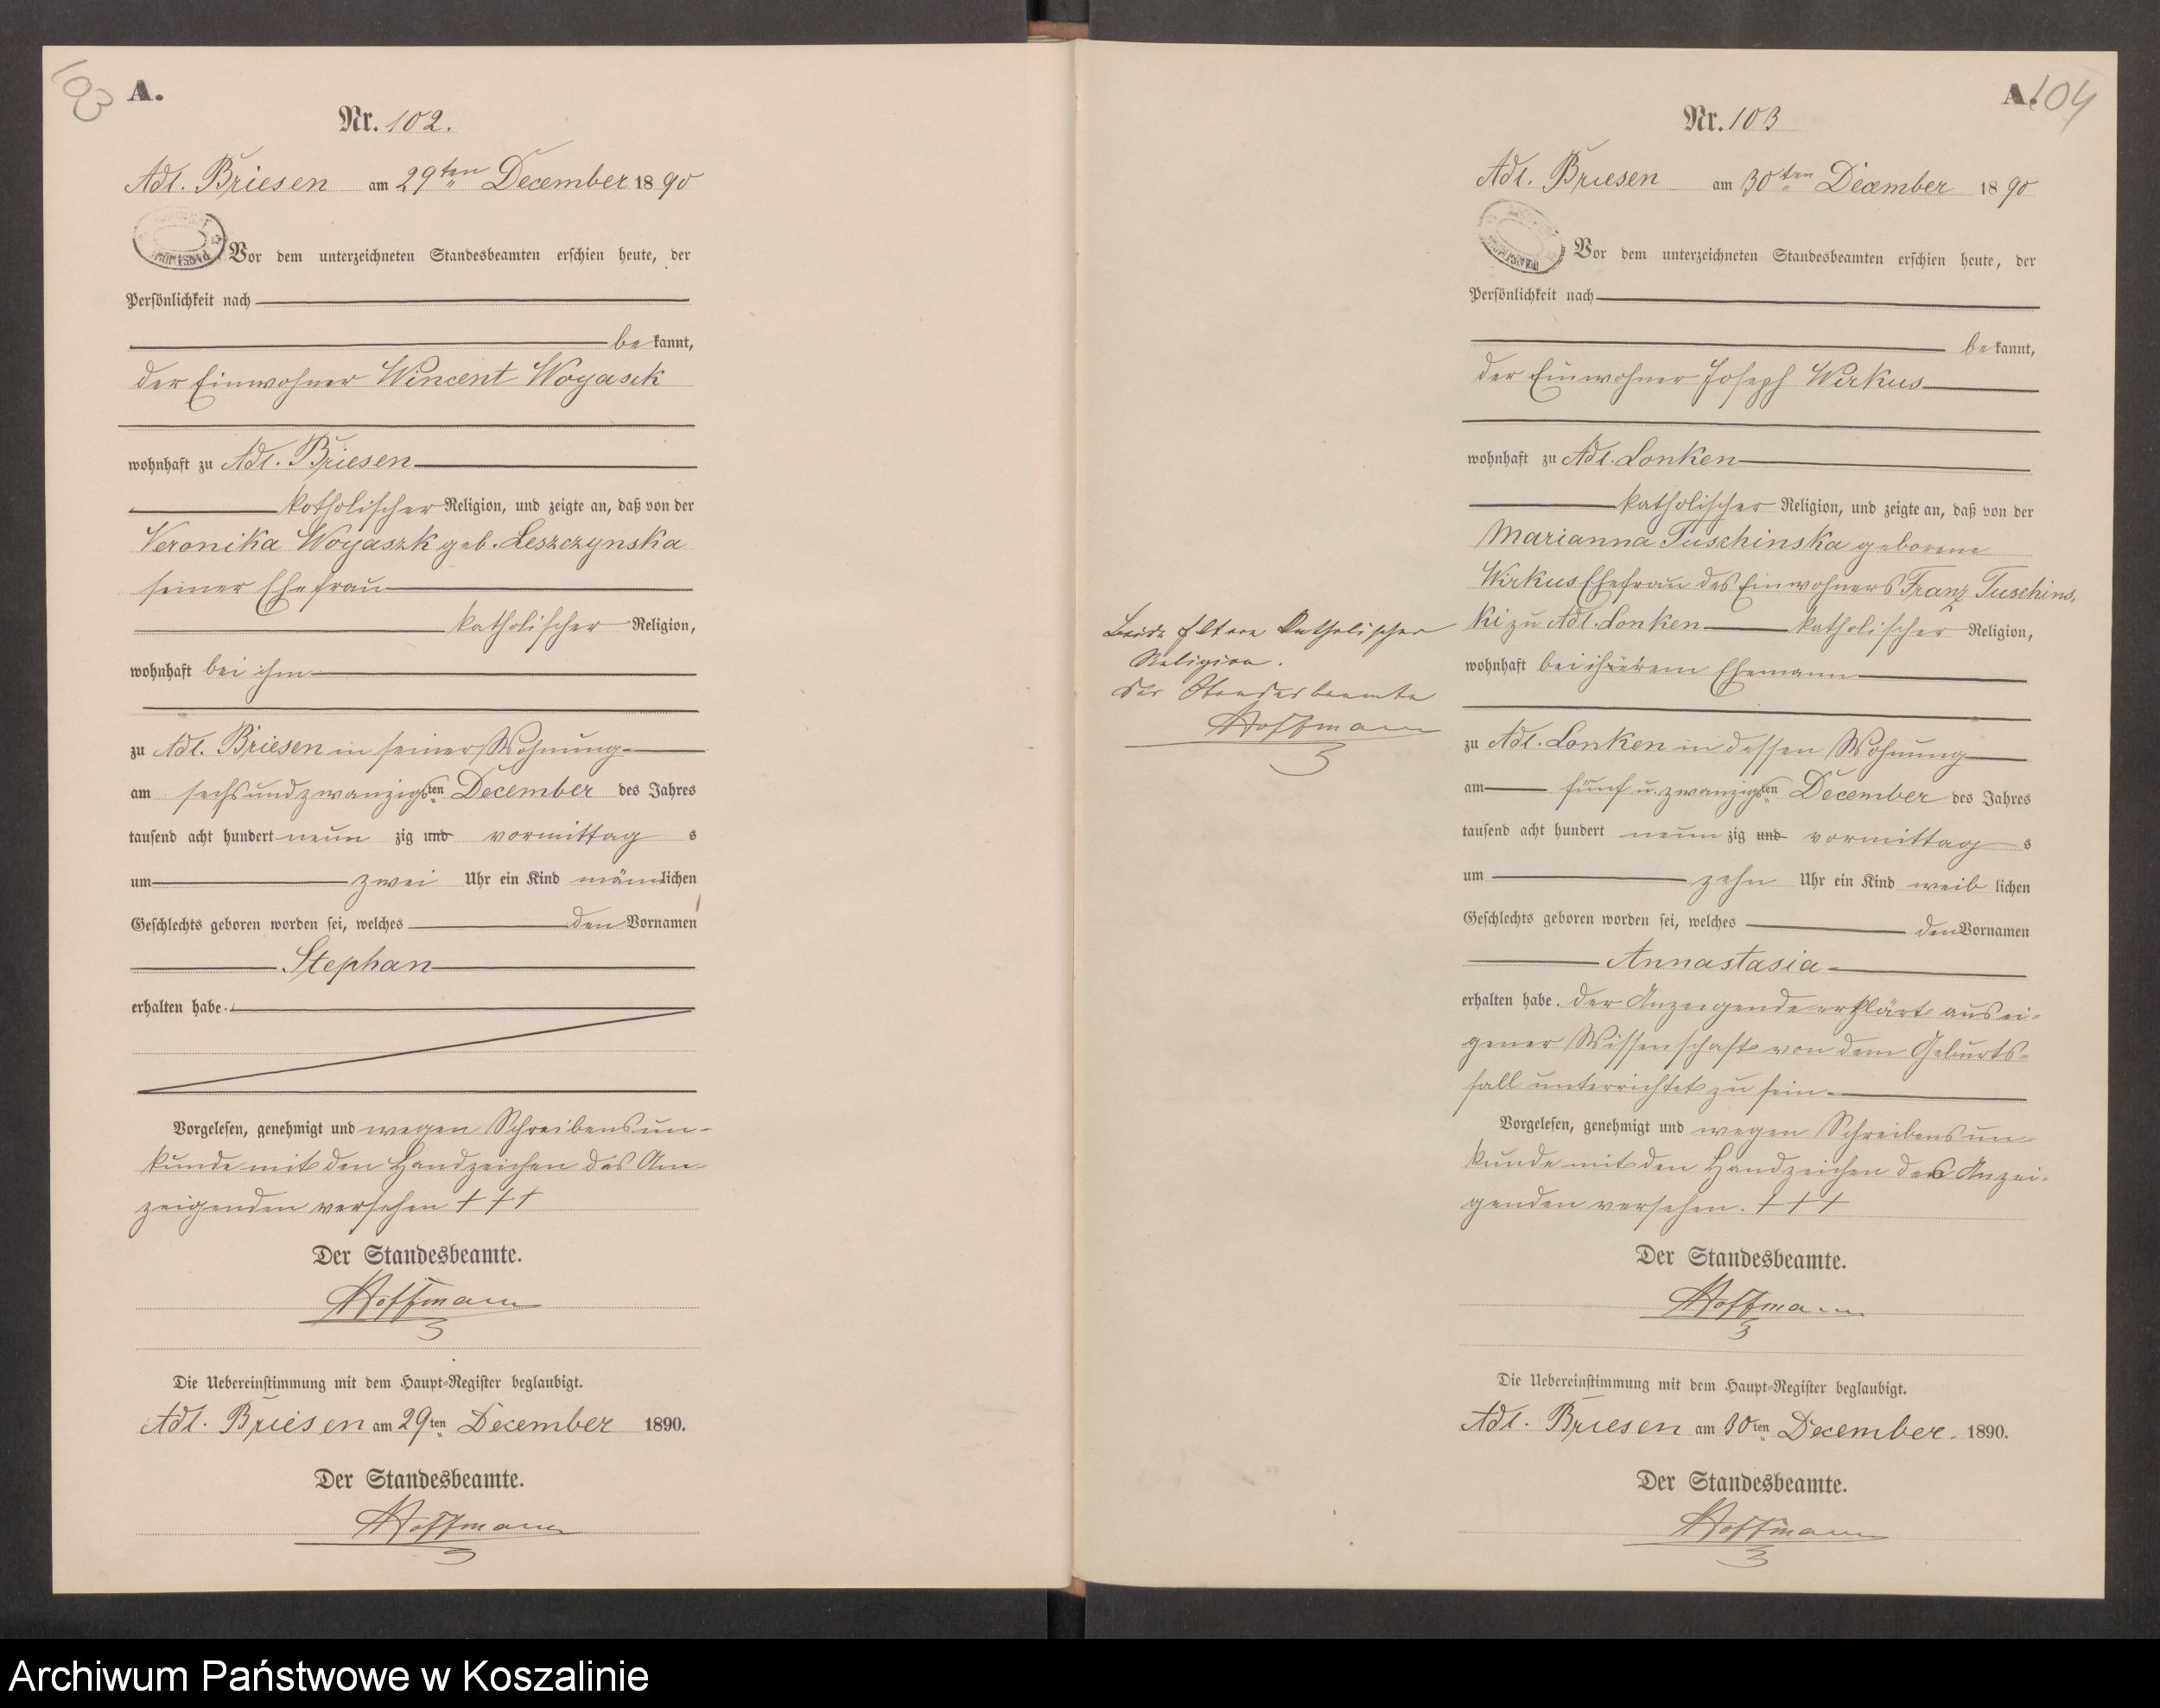 103
A.
Nr. 102.
Adl. Briesen am 29ten December 1890
Vor dem unterzeichneten Standesbeamten erschien heute, der
Persönlichkeit nach
bekannt,
der Einwohner Wincent Woyasck
wohnhaft zu Adl. Briesen
katholischer Religion, und zeigte an, daß von der
Veronika Woyaszk geb. Leszczynska
seiner Ehefrau
katholischer Religion,
wohnhaft bei ihm
zu Adl. Briesen in seiner Wohnung
am sechsundzwanzigsten December des Jahres
tausend acht hundert neun zig und vormittag s
um zwei Uhr ein Kind männlichen
Geschlechts geboren worden sei, welches den Vornamen
Stephan
erhalten habe.
Vorgelesen, genehmigt und wegen Schreibensun-
kunde mit den Handzeichen des An-
zeigenden versehen + + +
Der Standesbeamte.
Hoffmann
Die Uebereinstimmung mit dem Haupt-Register beglaubigt.
Adl. Briesen am 29ten December 1890.
Der Standesbeamte.
Hoffmann
A.
104
Nr. 103
Adl. Briesen am 30ten December 1890
Vor dem unterzeichneten Standesbeamten erschien heute, der
Persönlichkeit nach
bekannt,
der Einwohner Joseph Wirkus
wohnhaft zu Adl. Lonken
katholischer Religion, und zeigte an, daß von der
Marianna Tuschinska geborene
Wirkus Ehefrau des Einwohners Franz Tuschins-
ki zu Adl. Lonken katholischer Religion,
wohnhaft bei ihrem Ehemann
zu Adl. Lonken in dessen Wohnung
am fünf u. zwanzigsten December des Jahres
tausend acht hundert neun zig und vormittag s
um zehn Uhr ein Kind weib lichen
Geschlechts geboren worden sei, welches den Vornamen
Annastasia
erhalten habe. Der Anzeigende erklärt aus ei-
gener Wissenschaft von dem Geburts-
fall unterrichtet zu sein.
Vorgelesen, genehmigt und wegen Schreibensun-
kunde mit den Handzeichen des Anzei-
genden versehen. + + +
Der Standesbeamte.
Hoffmann
Die Uebereinstimmung mit dem Haupt-Register beglaubigt.
Adl. Briesen am 30ten December. 1890.
Der Standesbeamte.
Hoffmann
Beide Eltern katholischer
Religion.
Der Standesbeamte
Hoffmann
Archiwum Państwowe w Koszalinie